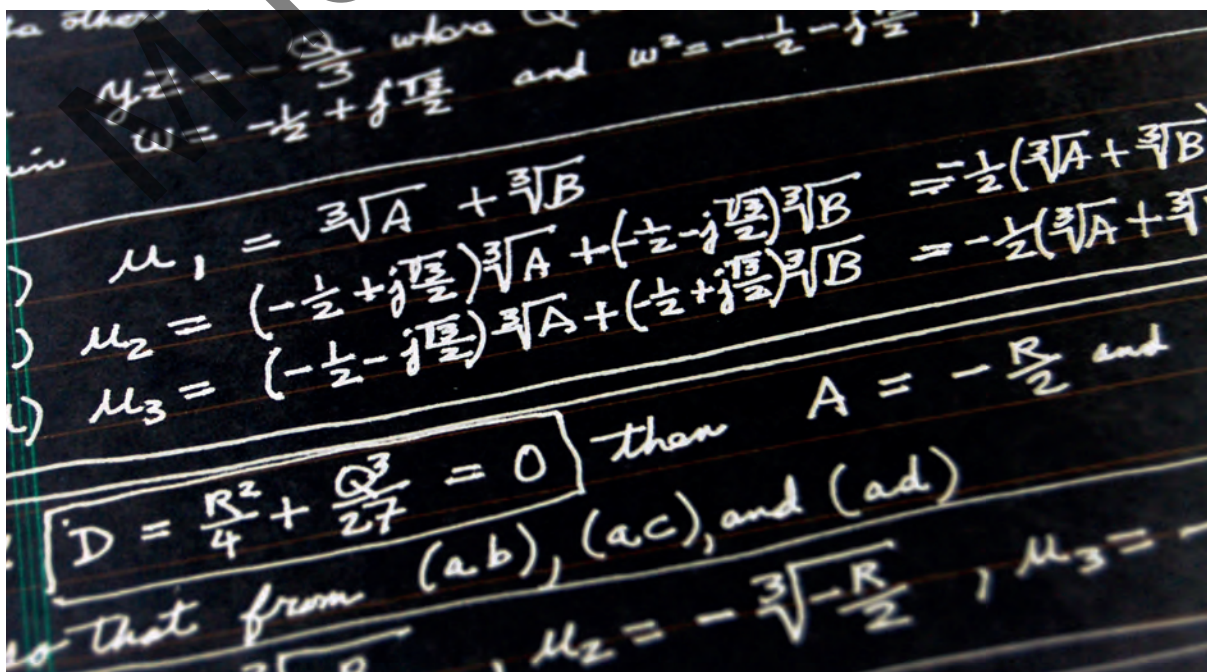 yz = -Q/3 where Q
ω = -1/2 + j√3/2 and ω² = -1/2 - j√3/2 ,
μ₁ = ∛A + ∛B
μ₂ = (-1/2 + j√3/2)∛A + (-1/2 - j√3/2)∛B = -1/2(∛A + ∛B)
μ₃ = (-1/2 - j√3/2)∛A + (-1/2 + j√3/2)∛B = -1/2(∛A + ∛
D = R²/4 + Q³/27 = 0 then A = -R/2 and
so that from (ab), (ac), and (ad)
, μ₂ = -∛-R/2 , μ₃ = -